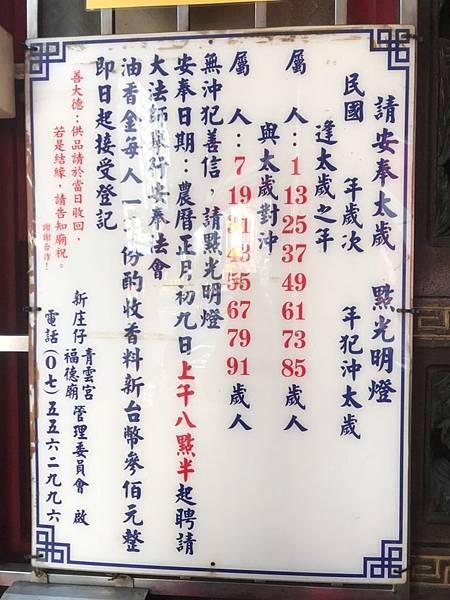 請安奉太歲　點光明燈
民國　年歲次　年犯沖太歲
逢太歲之年
屬　人：1 13 25 37 49 61 73 85 歲人
與太歲對沖
屬　人：7 19 31 43 55 67 79 91 歲人
無沖犯善信，請點光明燈
安奉日期：農曆正月初九日上午八點半起聘請
大法師舉行安奉法會
油香金每人一份酌收香料新台幣參佰元整
即日起接受登記
善大德：供品請於當日收回，
若是結緣，請告知廟祝。
謝謝合作！
新庄仔 青雲宮 福德廟 管理委員會 啟
電話（07）5562996